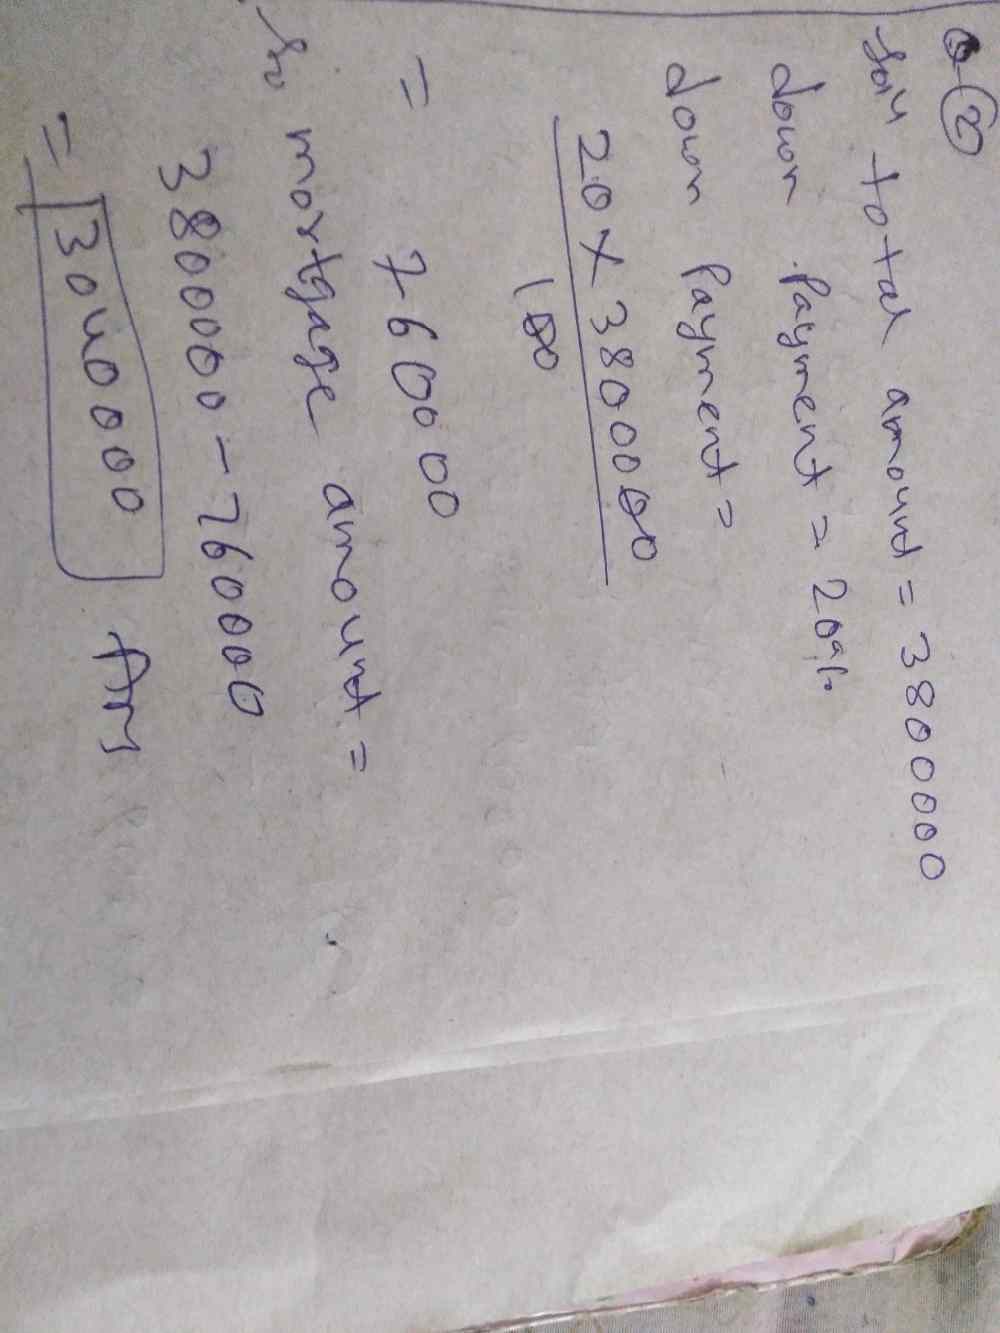 Q ②
Soln total amount = 3800000
down Payment = 20%
down Payment =
20 × 3800000
100
= 760000
So mortgage amount =
3800000 - 760000
= 3040000 Ans